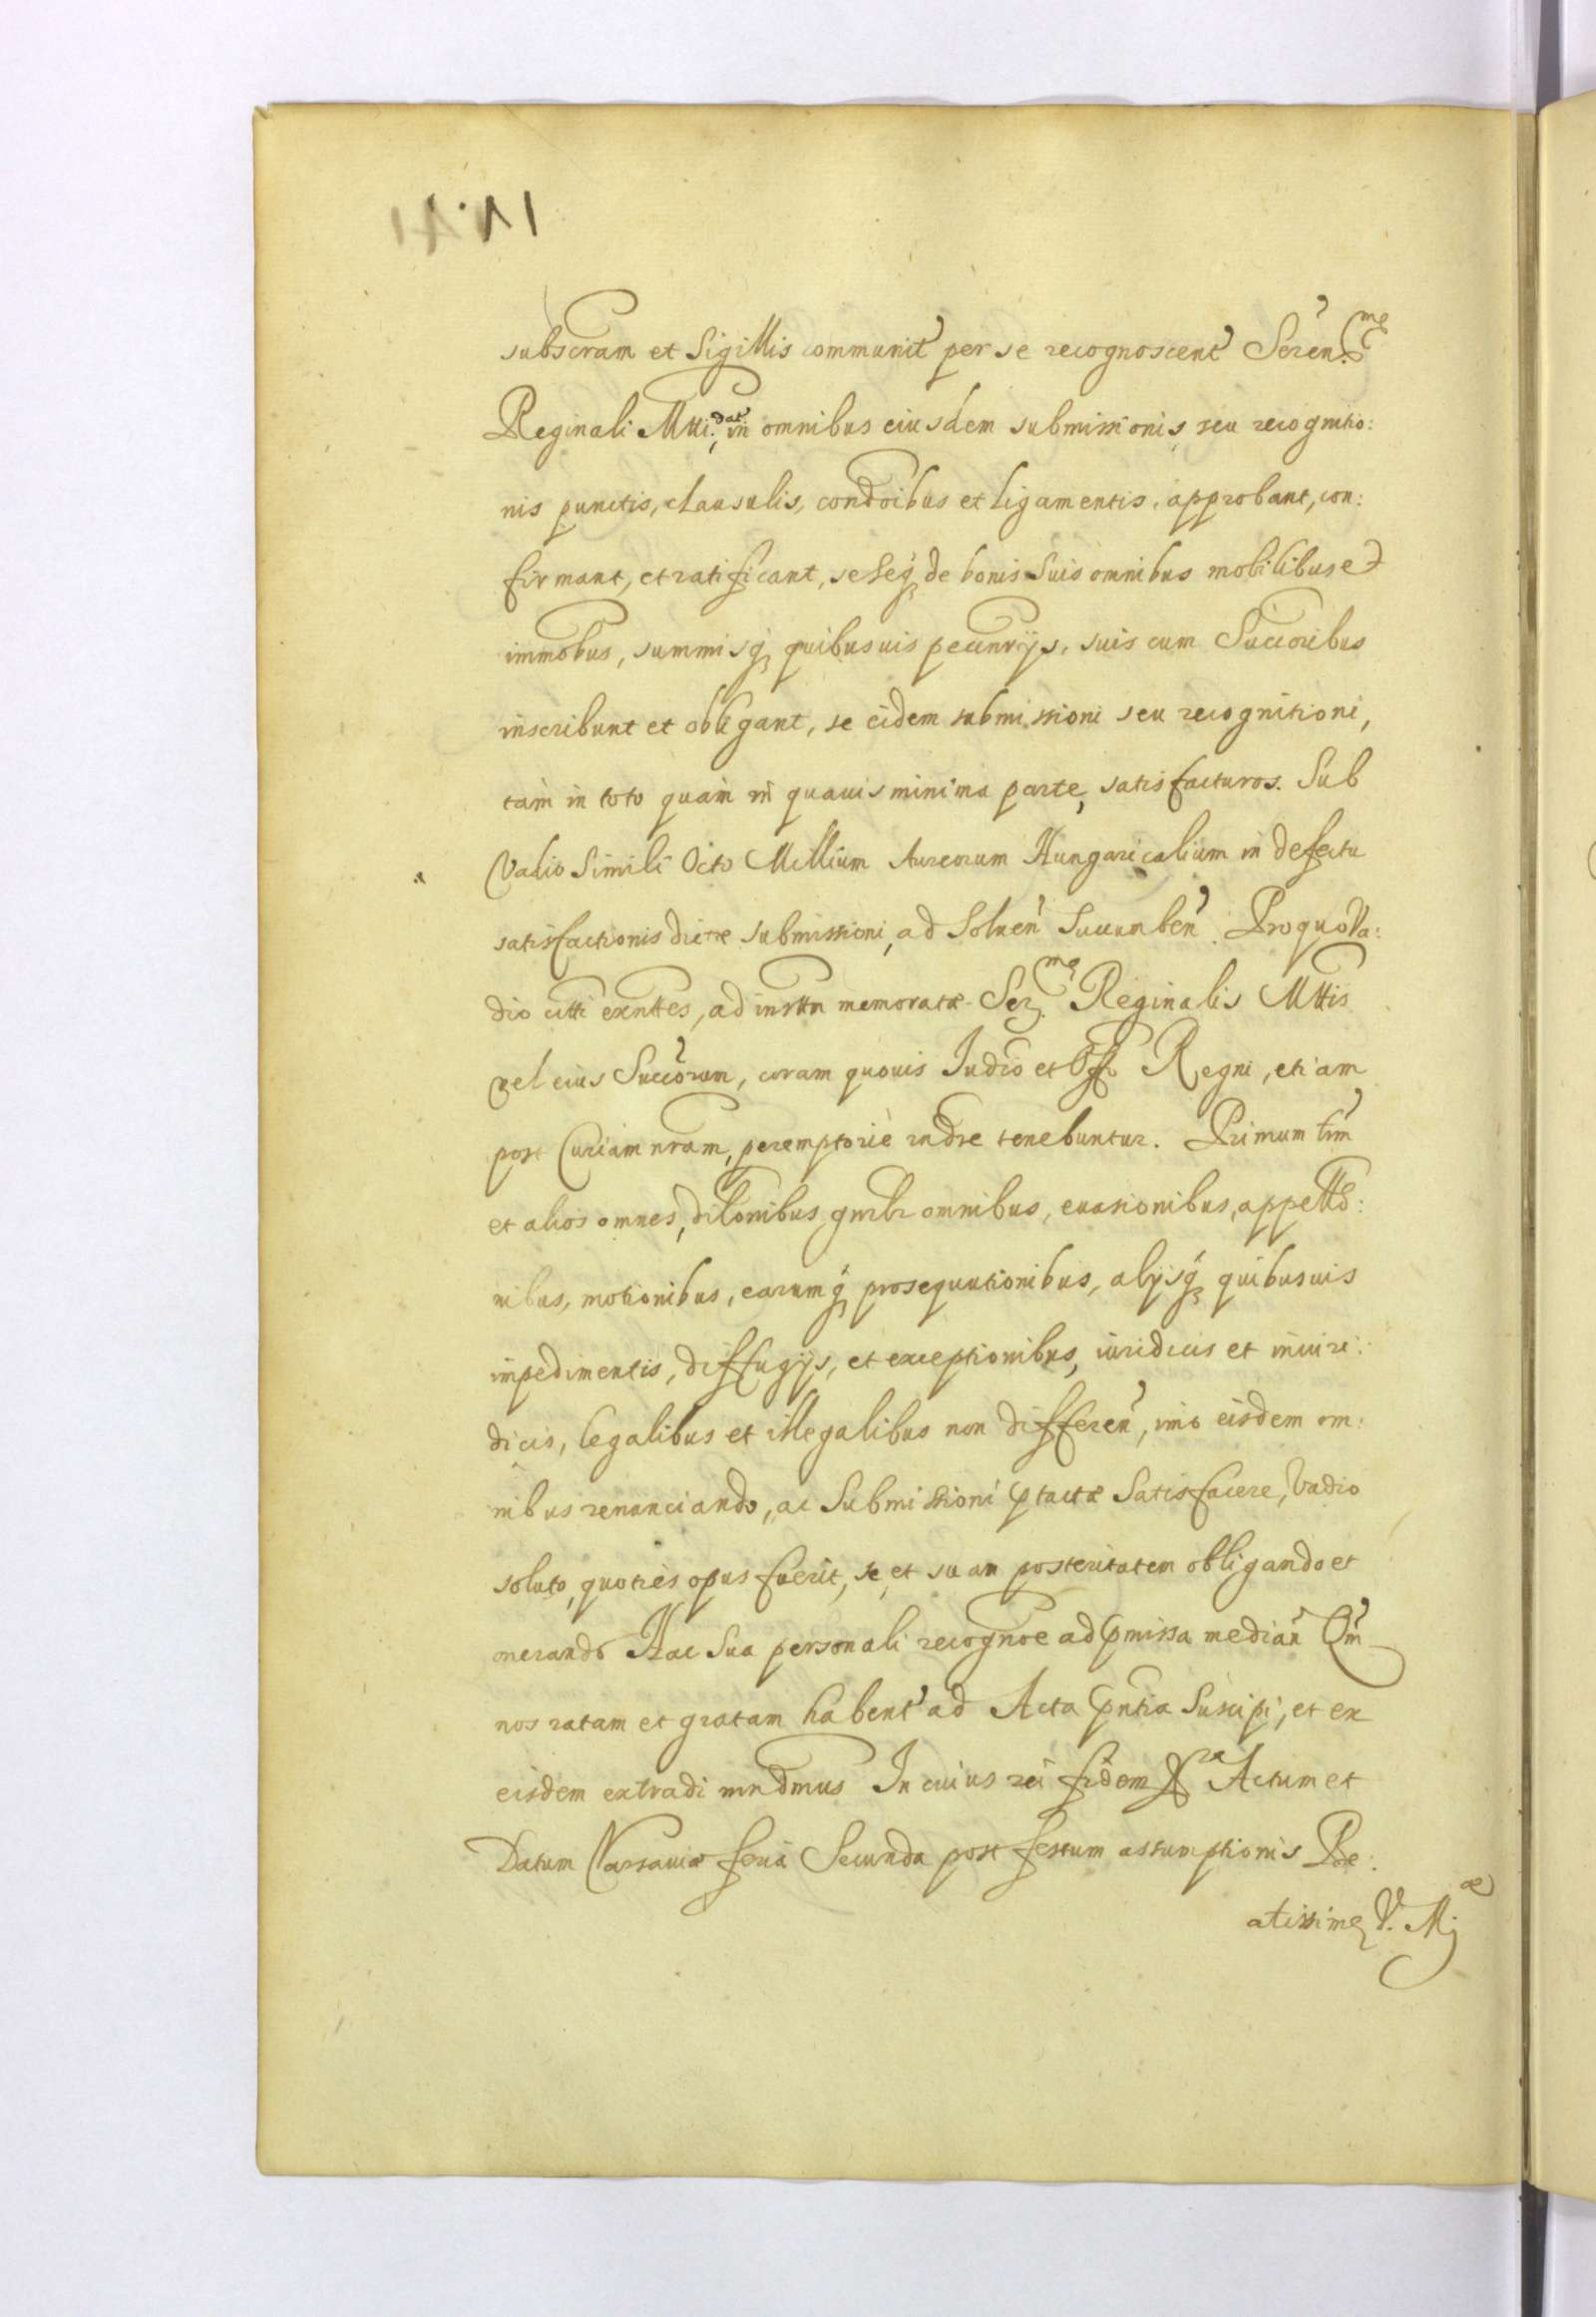 subscram et Sigillis communit per se recognoscent Seren.mae
Reginali Mtti. dat, in omnibus eiusdem submissionis seu recognitio:
nis punctis, clausulis, condoibus et ligamentis, approbant, con:
firmant, et ratificant, seseq; de bonis suis omnibus mobilibus et
immobus, summisq; quibusuis pecunrijs, suis cum Succoribus
inscribunt et obligant, se eidem submissioni seu recognitioni,
tam in toto quam in quauis minima parte, satisfacturos. Sub
Vadio Simili Octo Millium Aureorum Hungaricalium in defectu
satisfactionis dictae submissioni, ad soluen Succumben. Pro quo Va:
dio citti exnttes, ad insttn memoratae Ser.mae Reginalis Mttis
vel eius Succorum, coram quouis Iudio et Offo Regni, etiam
post Curiam nram, peremptorie rndre tenebuntur. Primum trm
et alios omnes, dilonibus gnrlr omnibus, euasionibus, appello:
nibus, motionibus, earumq; prosequutionibus, alijsq; quibusuis
impedimentis, diffugijs, et exceptionibus, iuridicis et iniuri:
dicis, legalibus et illegalibus non differen, imo eisdem om:
nibus renunciando, ac Submissioni ptactae Satisfacere, Vadio
soluto, quoties opus fuerit, se et suam posteritatem obligando et
onerando Hac Sua personali recognoe ad pmissa median Qm
nos ratam et gratam habent ad Acta pntia Suscipi, et ex
eisdem extradi mndmus In cuius rei fidem Actum et
Datum Varsauiae feria Secunda post festum assumptionis Be:
atissimae V. M:ae